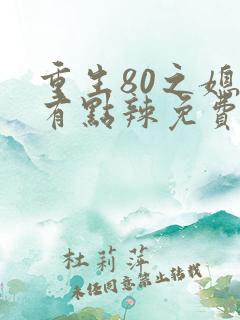 重生80之媳
有點辣免費
杜莉萍
未经同意禁止转载